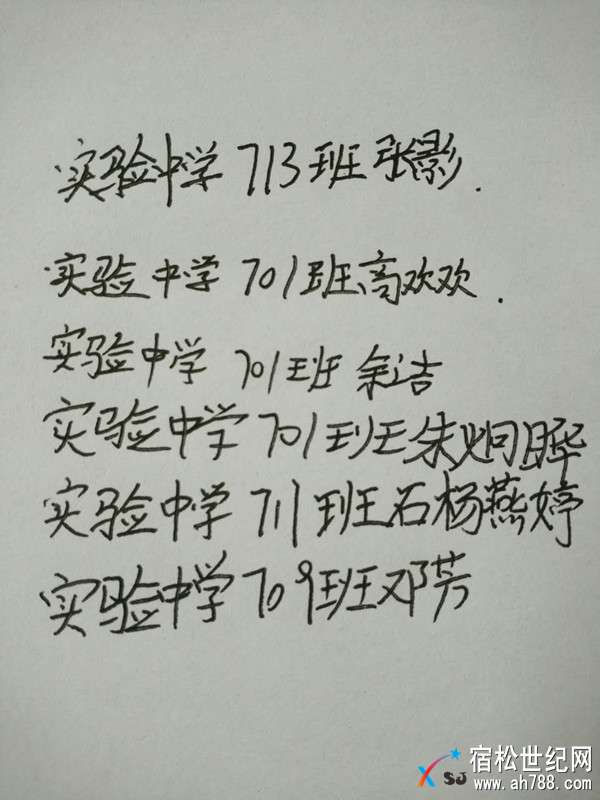 实验中学713班张影.
实验中学701班高欢欢.
实验中学701班余洁
实验中学701班朱炯晔
实验中学711班石杨燕婷
实验中学709班邓芳
SJ
宿松世纪网
www.ah788.com